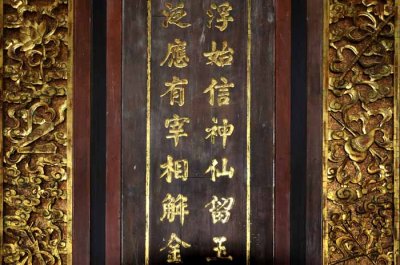 浮始信神仙留玉
應有宰相觧金